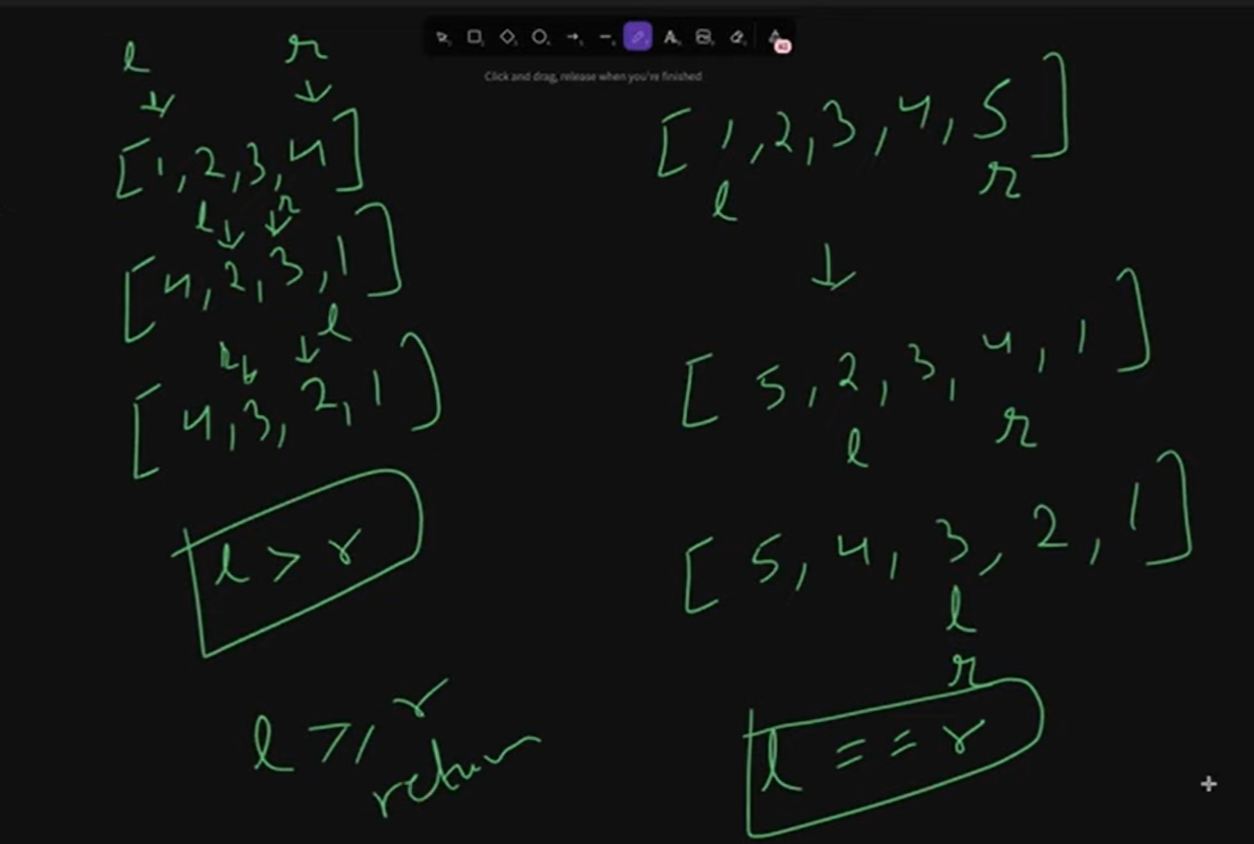 Click and drag, release when you're finished
l r
[1,2,3,4]
l r
[4,2,3,1]
r l
[4,3,2,1]
l > r
l ⩾ r
return
[1,2,3,4,5]
l r
[5,2,3,4,1]
l r
[5,4,3,2,1]
l
r
l == r